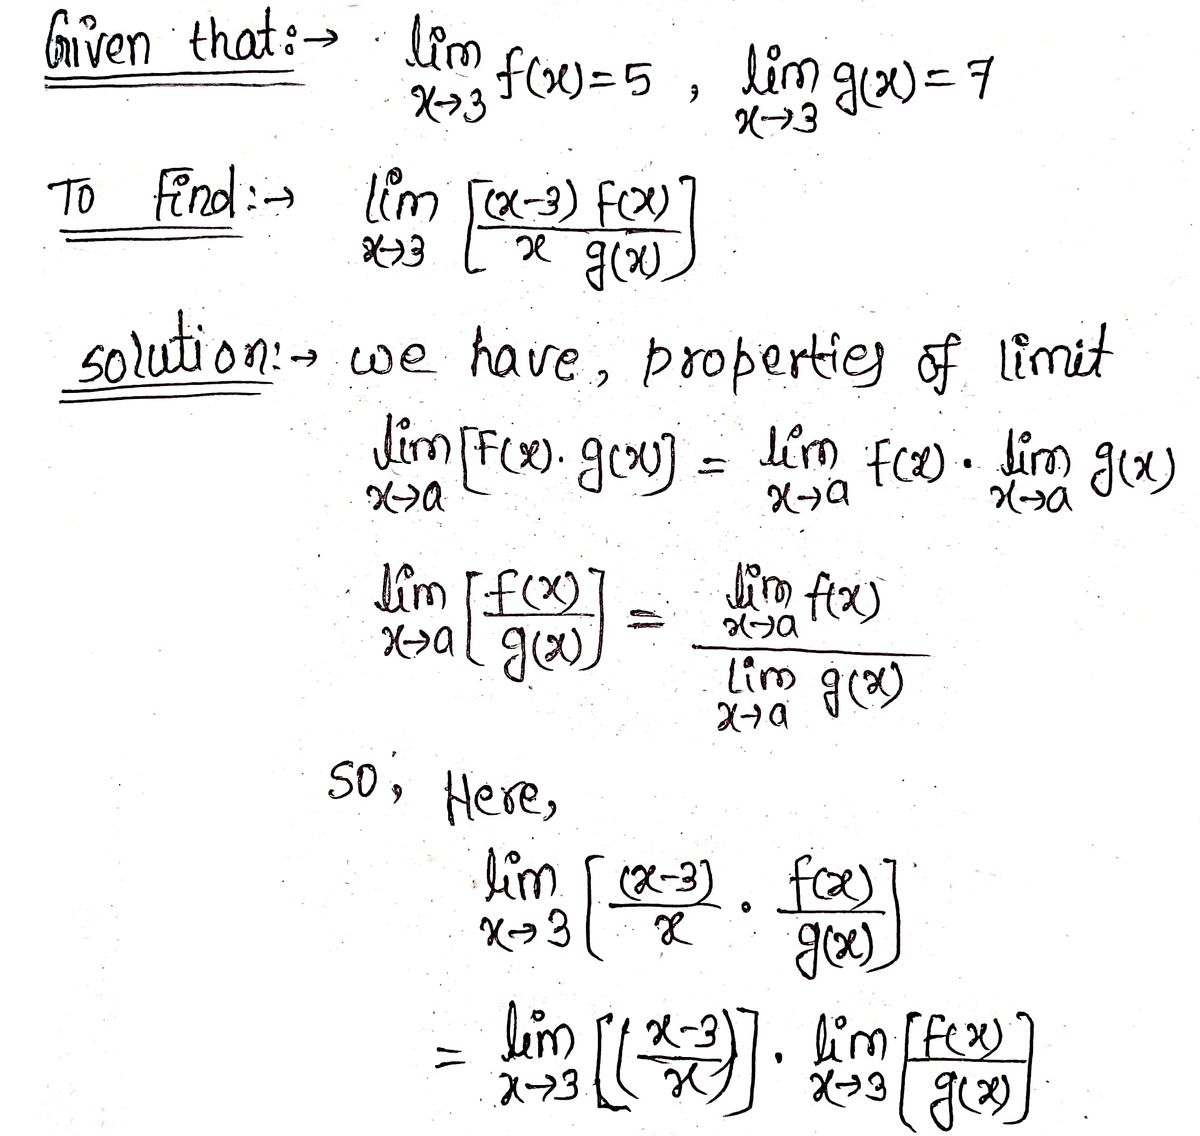 Given that:→ lim x→3 f(x)=5 , lim x→3 g(x)=7
To Find:→ lim x→3 [(x-3) f(x) / x g(x)]
solution:→ we have, properties of limit
lim x→a [f(x). g(x)] = lim x→a f(x) . lim x→a g(x)
lim x→a [f(x) / g(x)] = lim x→a f(x) / lim x→a g(x)
So, Here,
lim x→3 [(x-3) / x . f(x) / g(x)]
= lim x→3 [(x-3 / x)] . lim x→3 [f(x) / g(x)]